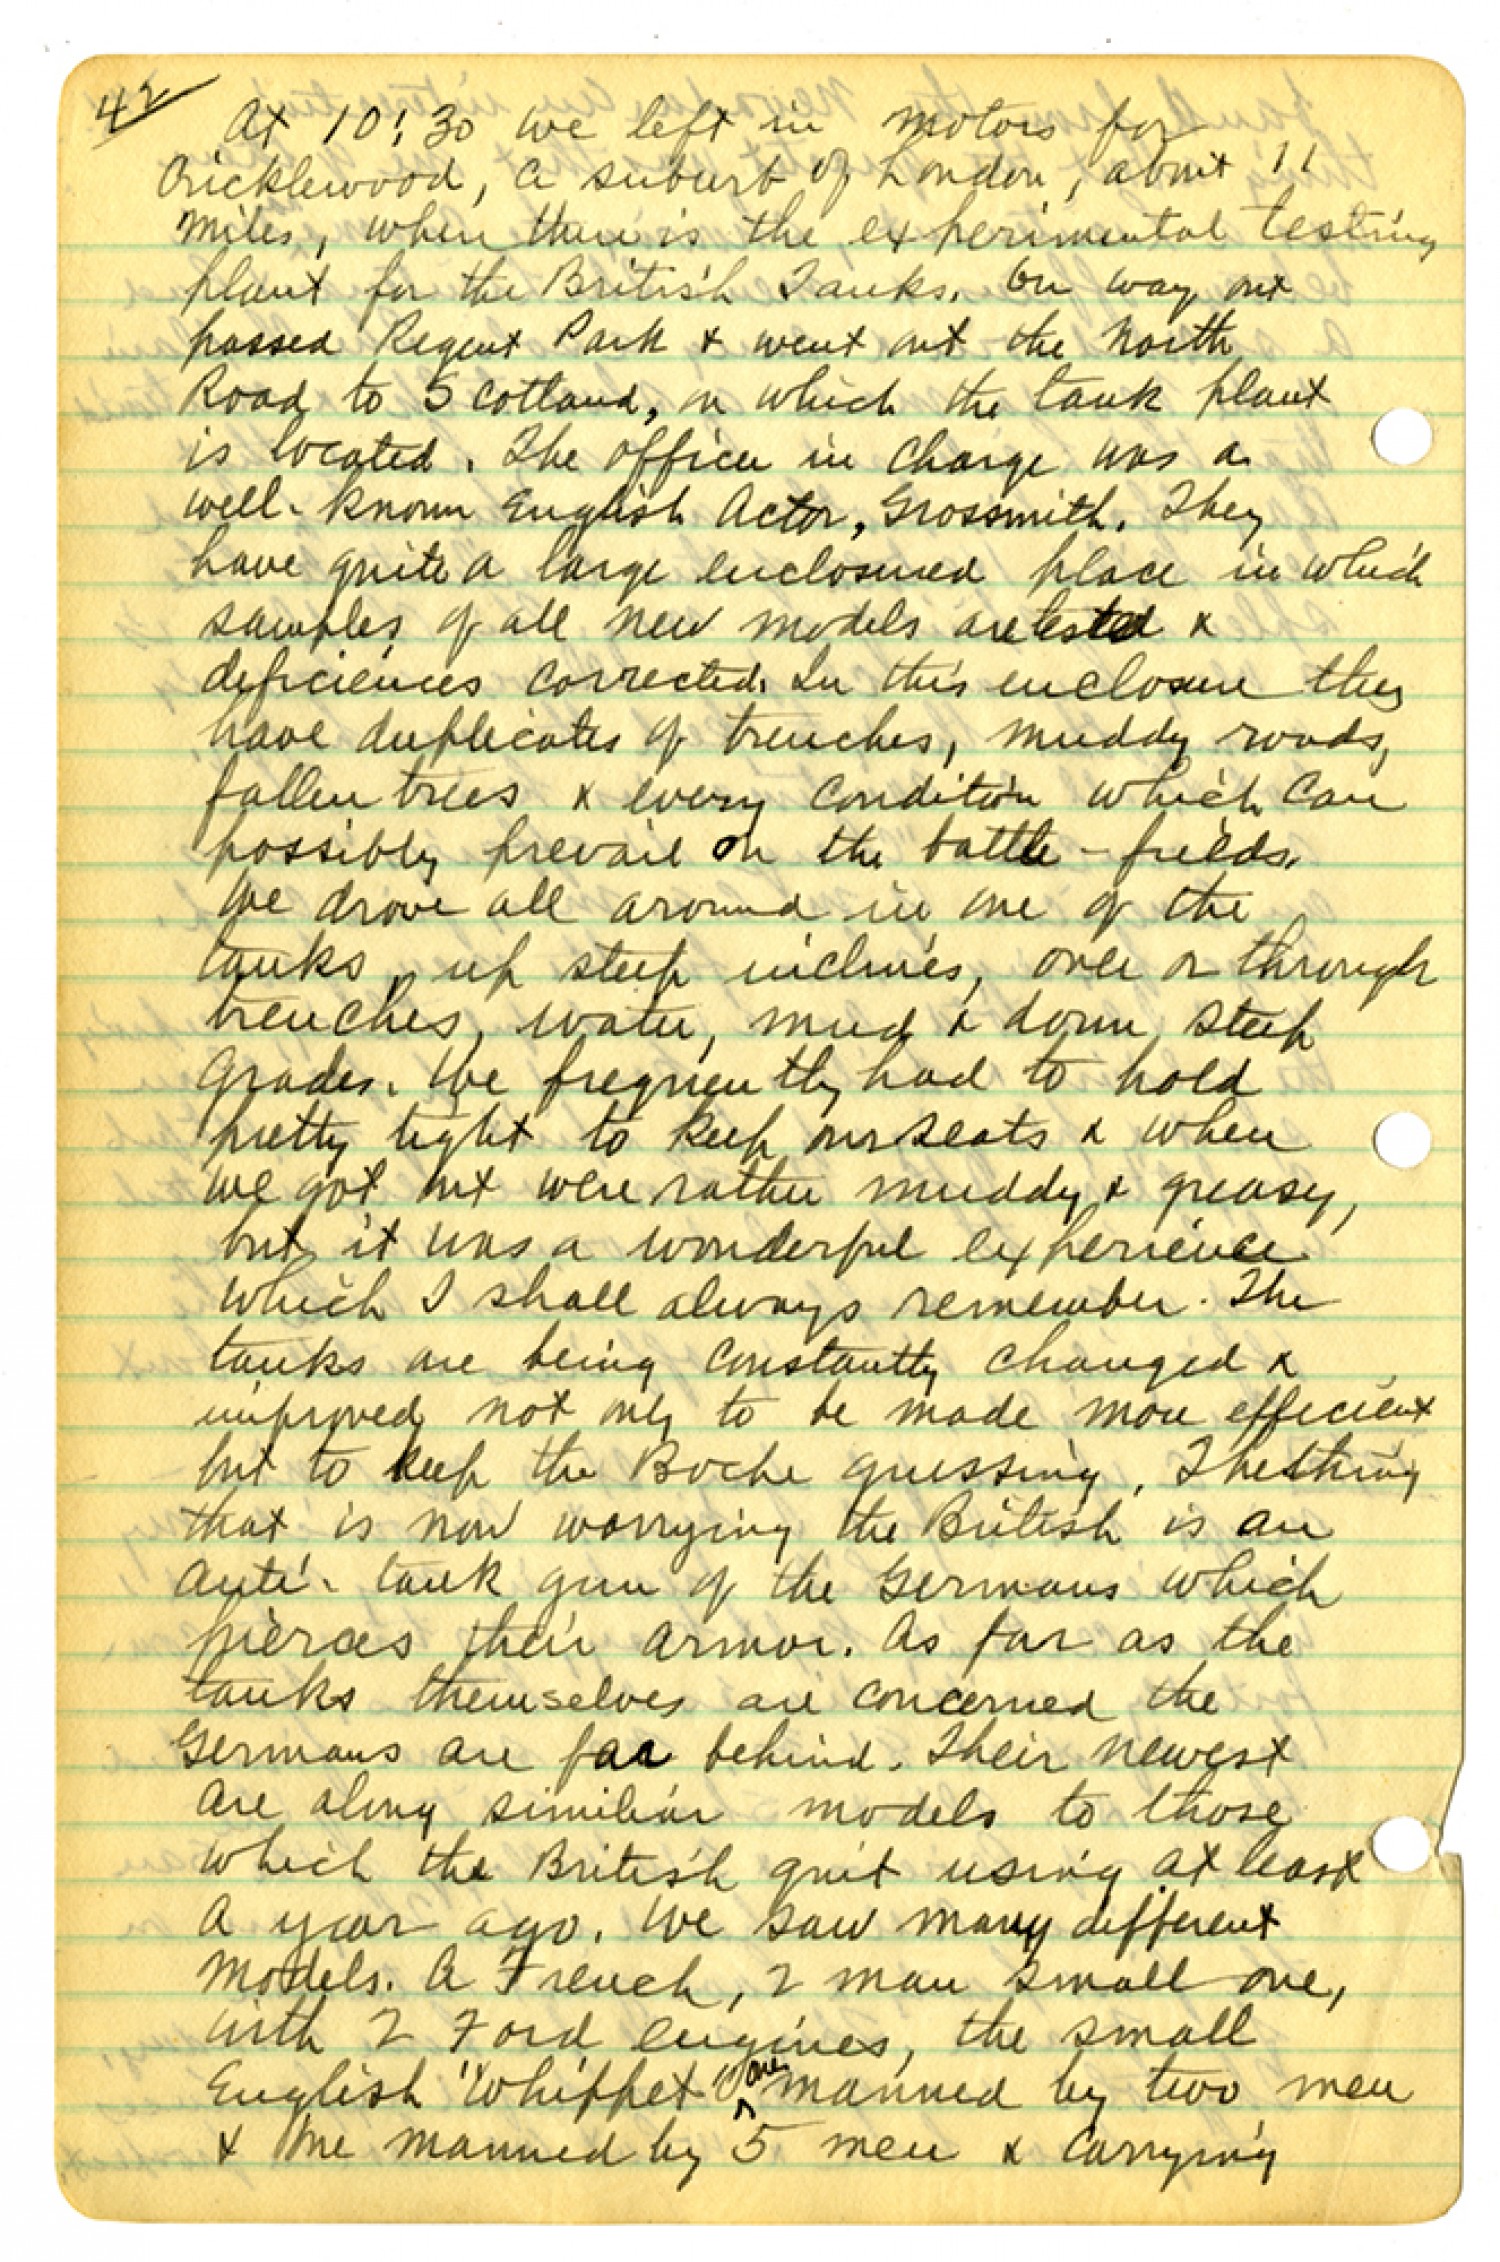 42
At 10:30 we left in motors for
Cricklewood, a suburb of London, about 11
miles, when there is the experimental testing
plant for the British Tanks. On way out
passed Regent Park & went out the North
Road to Scotland, on which the tank plant
is located. The officer in charge was a
well-known English Actor, Grossmith. They
have quite a large enclosured place in which
samples of all new models are tested &
deficiences corrected. In this enclosure they
have duplicates of trenches, muddy roads,
fallen trees & every condition which can
possibly prevail on the battle-fields.
We drove all around in one of the
tanks, up steep inclines, over or through
trenches, water, mud & down steep
grades. We frequently had to hold
pretty tight to keep our seats & when
we got out were rather muddy & greasy,
but it was a wonderful experience
which I shall always remember. The
tanks are being constantly changed &
improved not only to be made more efficient
but to keep the Boche guessing. The thing
that is now worrying the British is an
Anti-tank gun of the Germans which
pierces their armor. As far as the
tanks themselves are concerned the
Germans are far behind. Their newest
are along similiar models to those
which the British quit using at least
a year ago. We saw many different
models. A French, 2 man small one,
with 2 Ford engines, the small
English "Whippet" one manned by two men
& one manned by 5 men & carrying